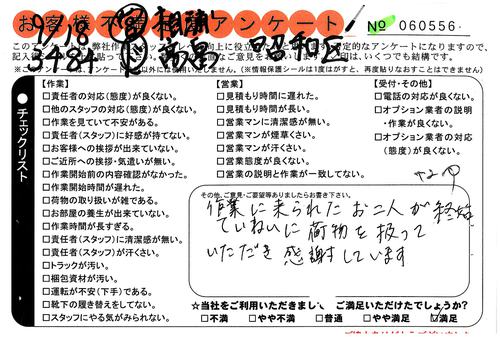 お客様不満足アンケート
No 060556
9/18
相談
昭和区
3484
このアンケートは、弊社作
記入
チェックリスト
【作業】
□責任者の対応(態度)が良くない。
□他のスタッフの対応(態度)が良くない。
□作業を見ていて不安がある。
□責任者(スタッフ)に好感が持てない。
□お客様への挨拶が出来ていない。
□ご近所への挨拶・気遣いが無い。
□作業開始前の内容確認がなかった。
□作業開始時間が遅れた。
□荷物の取り扱いが雑である。
□お部屋の養生が出来ていない。
□作業時間が長すぎる。
□責任者(スタッフ)に清潔感が無い。
□責任者(スタッフ)が汗くさい。
□トラックが汚い。
□梱包資材が汚い。
□運転が不安(下手)である。
□靴下の履き替えをしてない。
□スタッフにやる気がみられない。
【営業】
□見積もり時間に遅れた。
□見積もり時間が長い。
□営業マンに清潔感が無い。
□営業マンが煙草くさい。
□営業マンが汗くさい。
□営業態度が良くない。
□営業の説明と作業が一致してない。
【受付・その他】
□電話の対応が良くない。
□オプション業者の説明
・作業が良くない。
□オプション業者の対応
(態度)が良くない。
その他、ご意見・ご要望等ありましたらお書き下さい。
作業に来られたお二人が終始
ていねいに荷物を扱って
いただき感謝しています
☆当社をご利用いただきまして、ご満足いただけたでしょうか?
□不満 □やや不満 □普通 □やや満足 □満足